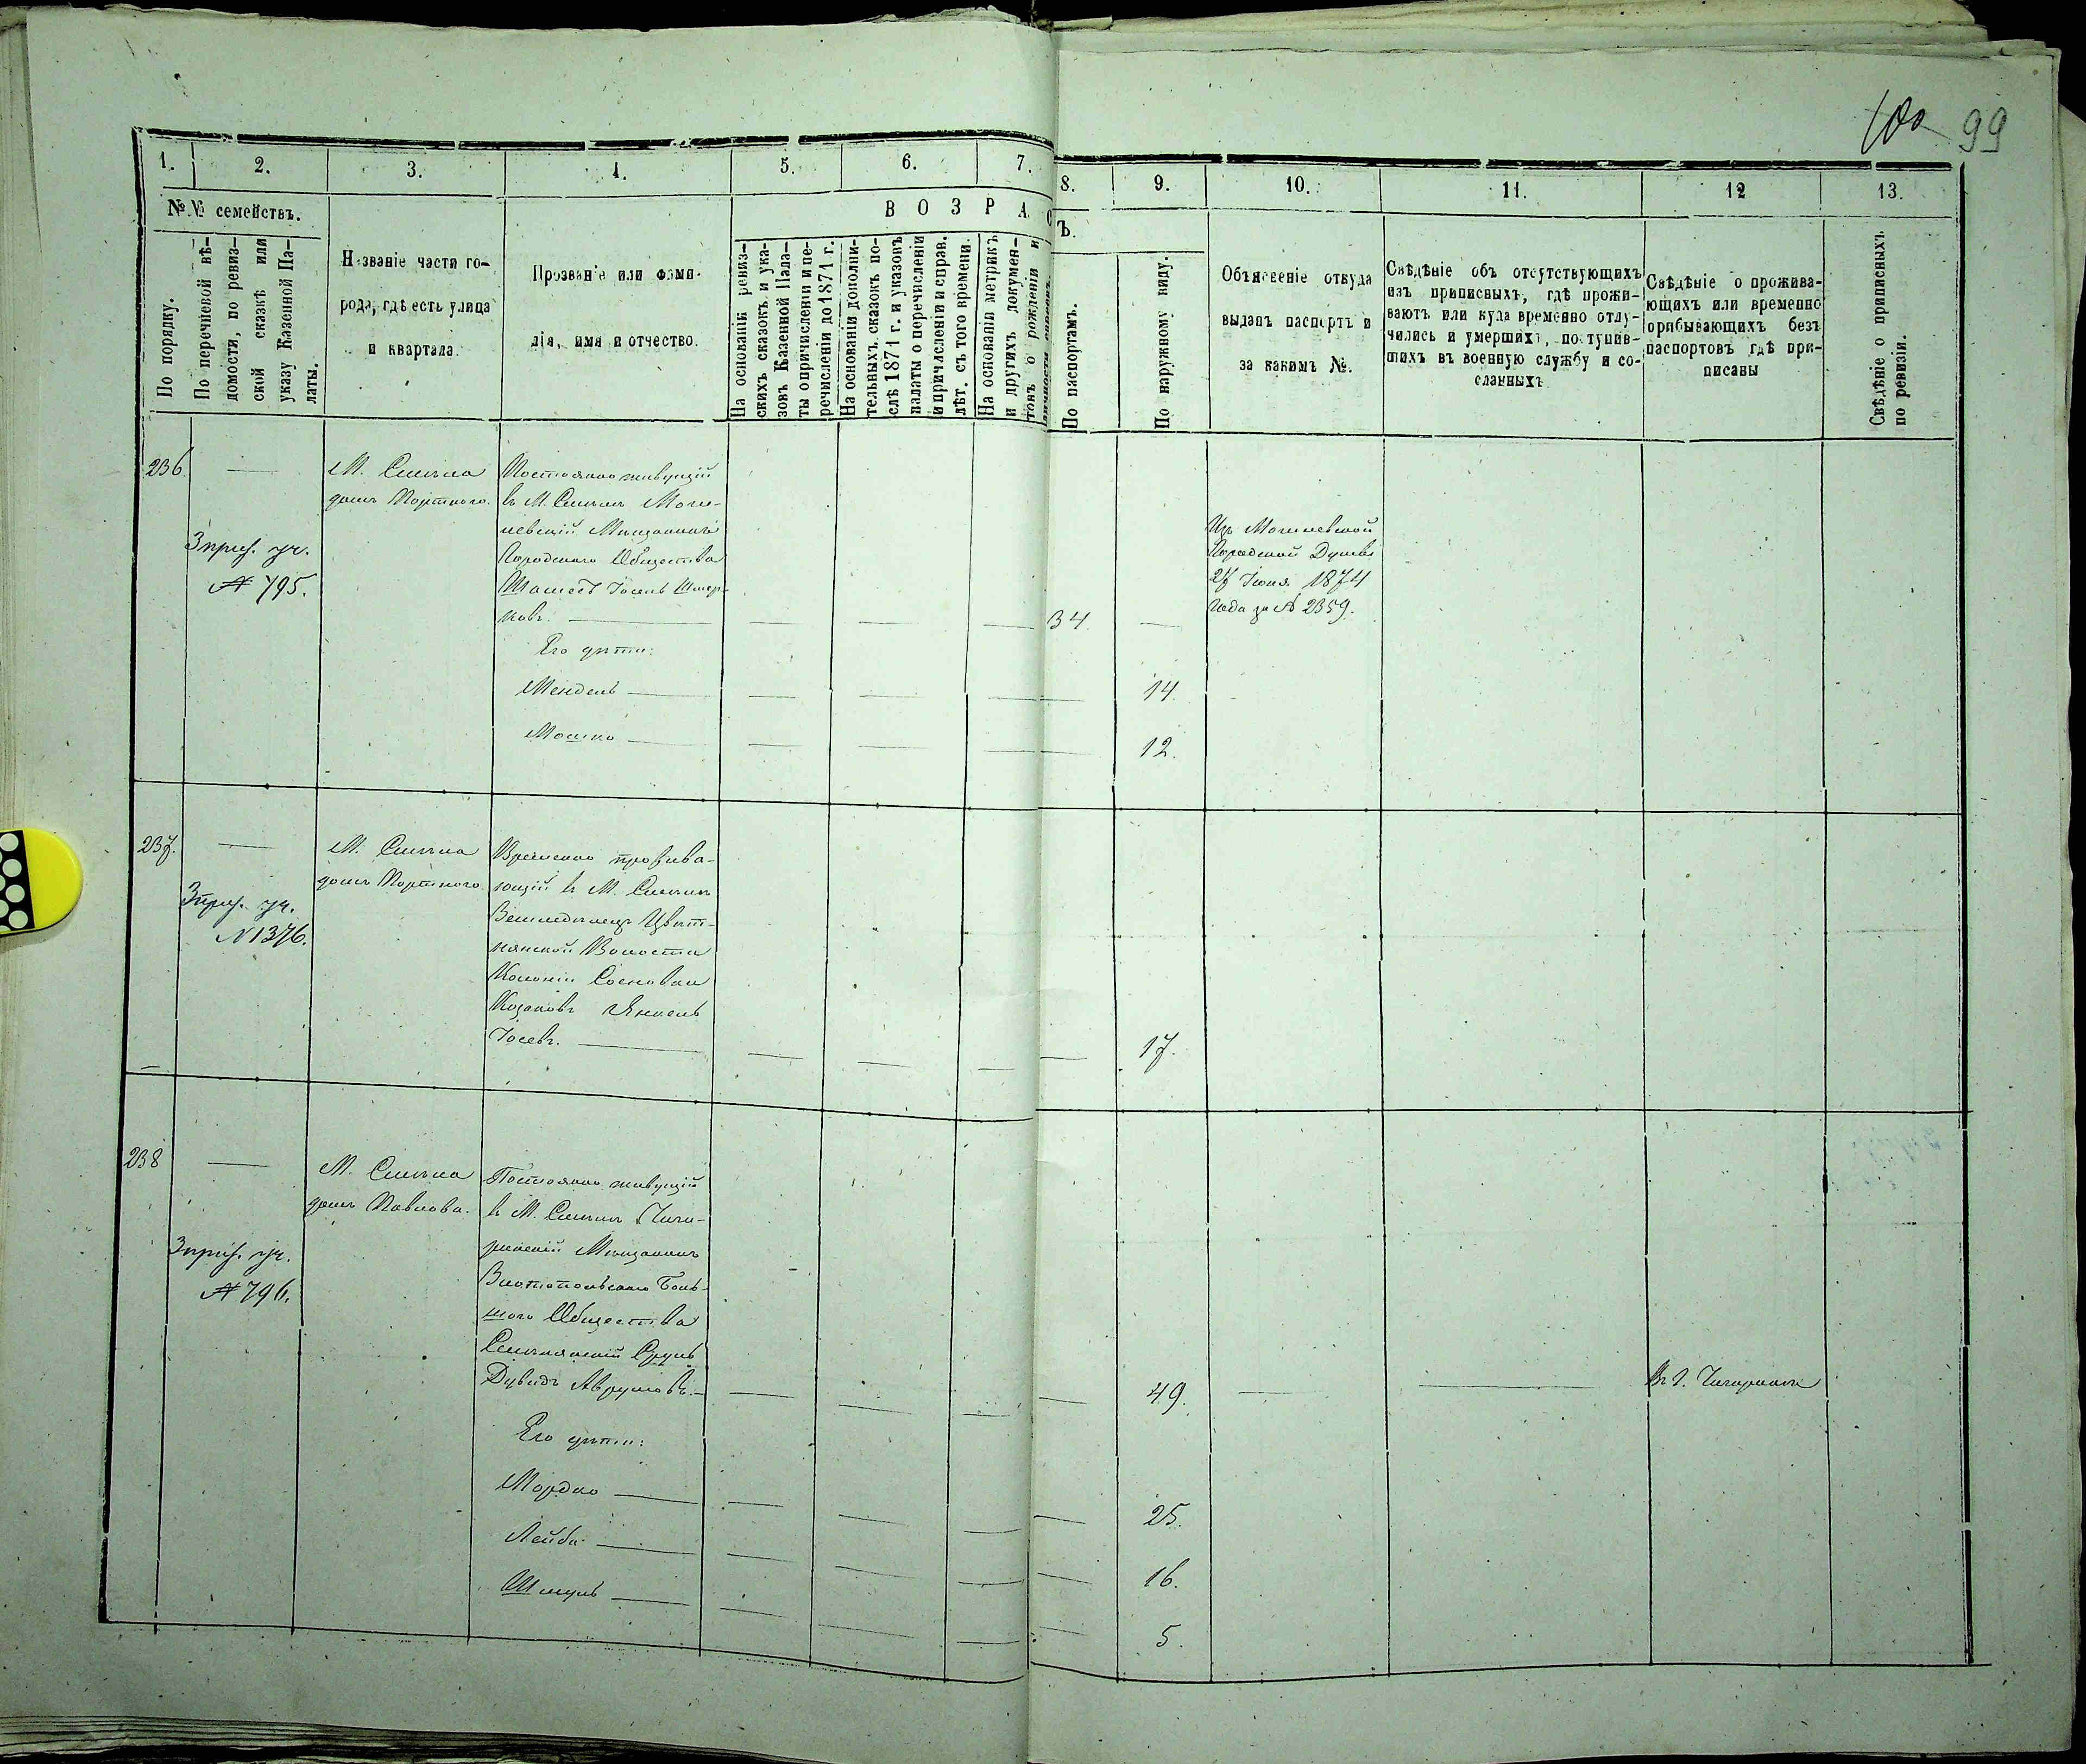 100 99
1. 2. 3. 4. 5. 6. 7. 8. 9. 10. 11. 12 13.
№№ семействъ.
По порядку.
По перечневой вѣ-
домости, по ревиз-
ской сказкѣ или
указу Казенной Па-
латы.
Названіе части го-
рода, гдѣ есть улица
и квартала.
Прозваніе или фами-
лія, имя и отчество.
ВОЗРАСТЪ.
На основаніи ревиз-
скихъ сказокъ и ука-
зовъ Казенной Пала-
ты о причисленіи и пе-
речисленіи до 1871 г.
На основаніи дополни-
тельныхъ сказокъ по-
слѣ 1871 г. и указовъ
палаты о перечисленіи
и причисленіи и справ.
лѣт. съ того времени.
На основаніи метрикъ
и другихъ докумен-
товъ о рожденіи и
По паспортамъ.
По наружному виду.
Объясненіе откуда
выданъ паспортъ и
за какимъ №.
Свѣдѣніе объ отсутствующихъ
изъ приписныхъ, гдѣ прожи-
ваютъ или куда временно отлу-
чились и умершихъ, поступив-
шихъ въ военную службу и со-
сланныхъ
Свѣдѣніе о прожива-
ющихъ или временно
прибывающихъ безъ
паспортовъ гдѣ при-
писаны
Свѣдѣніе о приписныхъ
по ревизіи.
236 —
3 приз. уч.
№ 795.
М. Смѣла
домъ Портного.
Постоянно живущій
въ М. Смѣлѣ Моги-
левскій Мѣщанинъ
Городского Общества
Іосель
ковъ. — 34 —
Его дѣти:
Мендель — 14.
Мошко — 12.
Изъ Могилевской
Городской Думы
27 Іюня 1874
года за № 2359.
237. —
3 приз. уч.
№ 1376.
М. Смѣла
домъ Портного
Временно прожива-
ющій въ М. Смѣлѣ
Земледѣлецъ Цвѣт-
нянской Волости
Колоніи Сосновки
Козаковъ Янкель
Іосевъ. — 17.
238 —
3 приз. уч.
№ 796.
М. Смѣла
домъ Павлова.
Постоянно живущій
въ М. Смѣлѣ Чиги-
ринскій Мѣщанинъ
Златопольскаго Боль-
шого Общества
Смѣлянскій Сруль
Дувидъ Аврумовъ. — 49. — — Въ г. Чигиринѣ
Его дѣти:
Мордко — 25.
Лейба — 16.
Шмуль — 5.